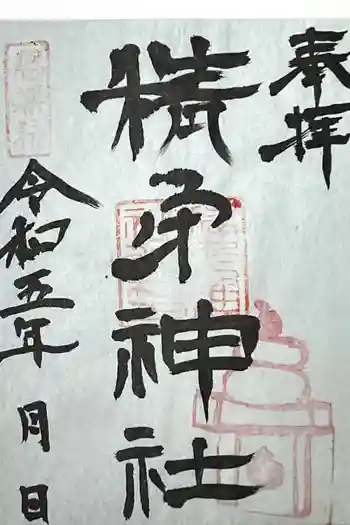 奉拝
精矛神社
令和五年 月 日